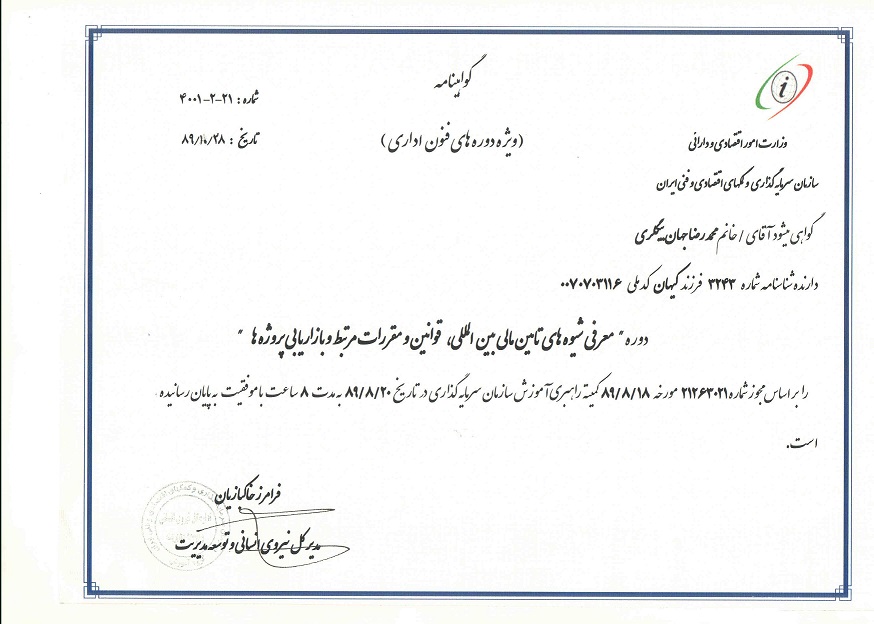 گواهینامه
شماره : ۲۱-۲-۴۰۰۱
(ویژه دوره های فنون اداری)
تاریخ : ۸۹/۱۰/۲۸
وزارت امور اقتصادی و دارائی
سازمان سرمایه گذاری و کمکهای اقتصادی و فنی ایران
گواهی میشود آقای / خانم محمدرضا جهان بیگلری
دارنده شناسنامه شماره ۳۲۴۳ فرزند کیهان کد ملی ۰۰۷۰۷۰۳۱۱۶
دوره " معرفی شیوه های تامین مالی بین المللی، قوانین و مقررات مرتبط و بازاریابی پروژه ها "
را بر اساس مجوز شماره ۲۱۲۶۳۰۲۱ مورخه ۸۹/۸/۱۸ کمیته راهبری آموزش سازمان سرمایه گذاری در تاریخ ۸۹/۸/۲۰ به مدت ۸ ساعت با موفقیت به پایان رسانیده
است.
فرامرز خاکبازیان
مدیر کل نیروی انسانی و توسعه مدیریت